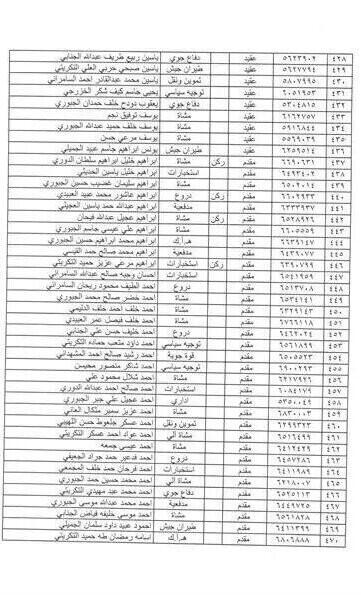 ٤٢٨ ٥٦٢٣٩٠٢ عقيد دفاع جوي ياسين ربيع طريف عبدالله الجنابي
٤٢٩ ٥٦٢٧٧٩٤ عقيد طيران جيش ياسين صبحي حربي العلي التكريتي
٤٣٠ ٥٨٠٧٩٩٥ عقيد تموين ونقل ياسين محمد عبدالقادر احمد السامرائي
٤٣١ ٦٠٠٥١٩٥٣ عقيد توجيه سياسي يحيى جاسم كيف شكر الخزرجي
٤٣٢ ٥٣٠٤٨١٥ عقيد دفاع جوي يعقوب دودح خلف حمدان الجبوري
٤٣٣ ٦١٦٢٧٥٧ عقيد مشاة يوسف توفيق نجم
٤٣٤ ٥٩١٦٨٤٤ عقيد مشاة يوسف خلف حميد عبدالله الجبوري
٤٣٥ ٥٥٦٩٠٣٩ عقيد مشاة يوسف مرعي حسن
٤٣٦ ٦٢٥٩٥١٤ عقيد طيران جيش يونس ابراهيم جاسم عبيد الجميلي
٤٣٧ ٦٦٩٠٦٣١ مقدم ركن مشاة ابراهيم خليل ابراهيم سلطان الدوري
٤٣٨ ٦٤٩٣٤٠٢ مقدم استخبارات ابراهيم خليل ياسين الحديثي
٤٣٩ ٦٥٠٢٠١٤ مقدم مشاة ابراهيم سليمان غضيب حسين الجبوري
٤٤٠ ٦٦٠٢٩٣٣ مقدم ركن دروع ابراهيم عاشور محمد عبيد العبيدي
٤٤١ ٦٣٣٣٩٣٧ مقدم مدفعية ابراهيم عبدالله حمد ياسين العجيلي
٤٤٢ ٦٥٢٨٩٢٦ مقدم ركن مشاة ابراهيم عجيل عبدالله فيحان
٤٤٣ ٦٦٠٥٥٥٩ مقدم مشاة ابراهيم علي عيسى جاسم الجبوري
٤٤٤ ٦٦٣٩١٤٧ مقدم هـ.أ.ك ابراهيم محمد ابراهيم حسين الجبوري
٤٤٥ ٦٤٣٦٠٧٧ مقدم مشاة ابراهيم محمد صالح حمد القيسي
٤٤٦ ٦٣٩٠٧٩٩ مقدم ركن استخبارات ابراهيم مرعي عزيز حميد التكريتي
٤٤٧ ٦٥٤١٩٥٩ مقدم مشاة احسان وجبه صالح عبدالله السامرائي
٤٤٨ ٦٥١٣٧٠٨ مقدم دروع احمد الطيف محمود ريحان السامرائي
٤٤٩ ٦٥٣٤١٤١ مقدم مشاة احمد خضر صالح محمد الجبوري
٤٥٠ ٦٣٢٩١٤٣ مقدم مشاة احمد خلف احمد خلف الدليمي
٤٥١ ٦٧٦٦١١٨ مقدم مشاة احمد خلف فيصل عمر العبيدي
٤٥٢ ٦٤٦٢٠٢٤ مقدم دروع احمد خليف حسن علي الجنابي
٤٥٣ ٦٥٦١٨٩٩ مقدم توجيه سياسي احمد داود متعب حماده التكريتي
٤٥٤ ٦٠٠٥٥٢٣ مقدم قوة جوية احمد رشيد صالح احمد المشهداني
٤٥٥ ٦٩٠٠٢٩٣ مقدم توجيه سياسي احمد شاكر منصور محيسن
٤٥٦ ٦٢١٧٩٢٢ مقدم مشاة احمد شلال محمود علي
٤٥٧ ٦٠٨٤١٧٩ مقدم استخبارات احمد صالح احمد عبدالله الدوري
٤٥٨ ٥٣٥٠٠٤٩ مقدم اداري احمد عجيل علي جبر الجبوري
٤٥٩ ٦٨٣٠٠٠٣ مقدم مشاة احمد عزيز سمير مثكال العاني
٤٦٠ ٦٢٩٩٣٢٣ مقدم تموين ونقل احمد عسكر جلعوط حسن اللهيبي
٤٦١ ٦٥١٦٤٩٩ مقدم مشاة آلي احمد عواد احمد عسكر التكريتي
٤٦٢ ٦٤١٢٤٢٩ مقدم مشاة احمد عيسى جمعه
٤٦٣ ٦٤٥٧٢٨٦ مقدم دروع احمد فدعير حمد جراد الجعيفي
٤٦٤ ٦٤١١٩٨٩ مقدم استخبارات احمد فرحان حمد خلف المجمعي
٤٦٥ ٦٢١٨٠٠٧ مقدم مشاة آلي احمد محمد حسين حمد الجبوري
٤٦٦ ٦٥٢٥١١٣ مقدم مشاة احمد محمد عبد مهيدي التكريتي
٤٦٧ ٦٤٤٩٧٢٥ مقدم مدفعية احمد محمد عبدالله موسى الجبوري
٤٦٨ ٦٥٦١٨٢٨ مقدم مشاة احمد موسى خليفه فياض الجنابي
٤٦٩ ٦٤١١٣٩٩ مقدم طيران جيش احمود عبيد داود سلمان الجميلي
٤٧٠ ٦٨٠٦٨٨٨ مقدم هـ.أ.ك اسامه رمضان طه حميد التكريتي